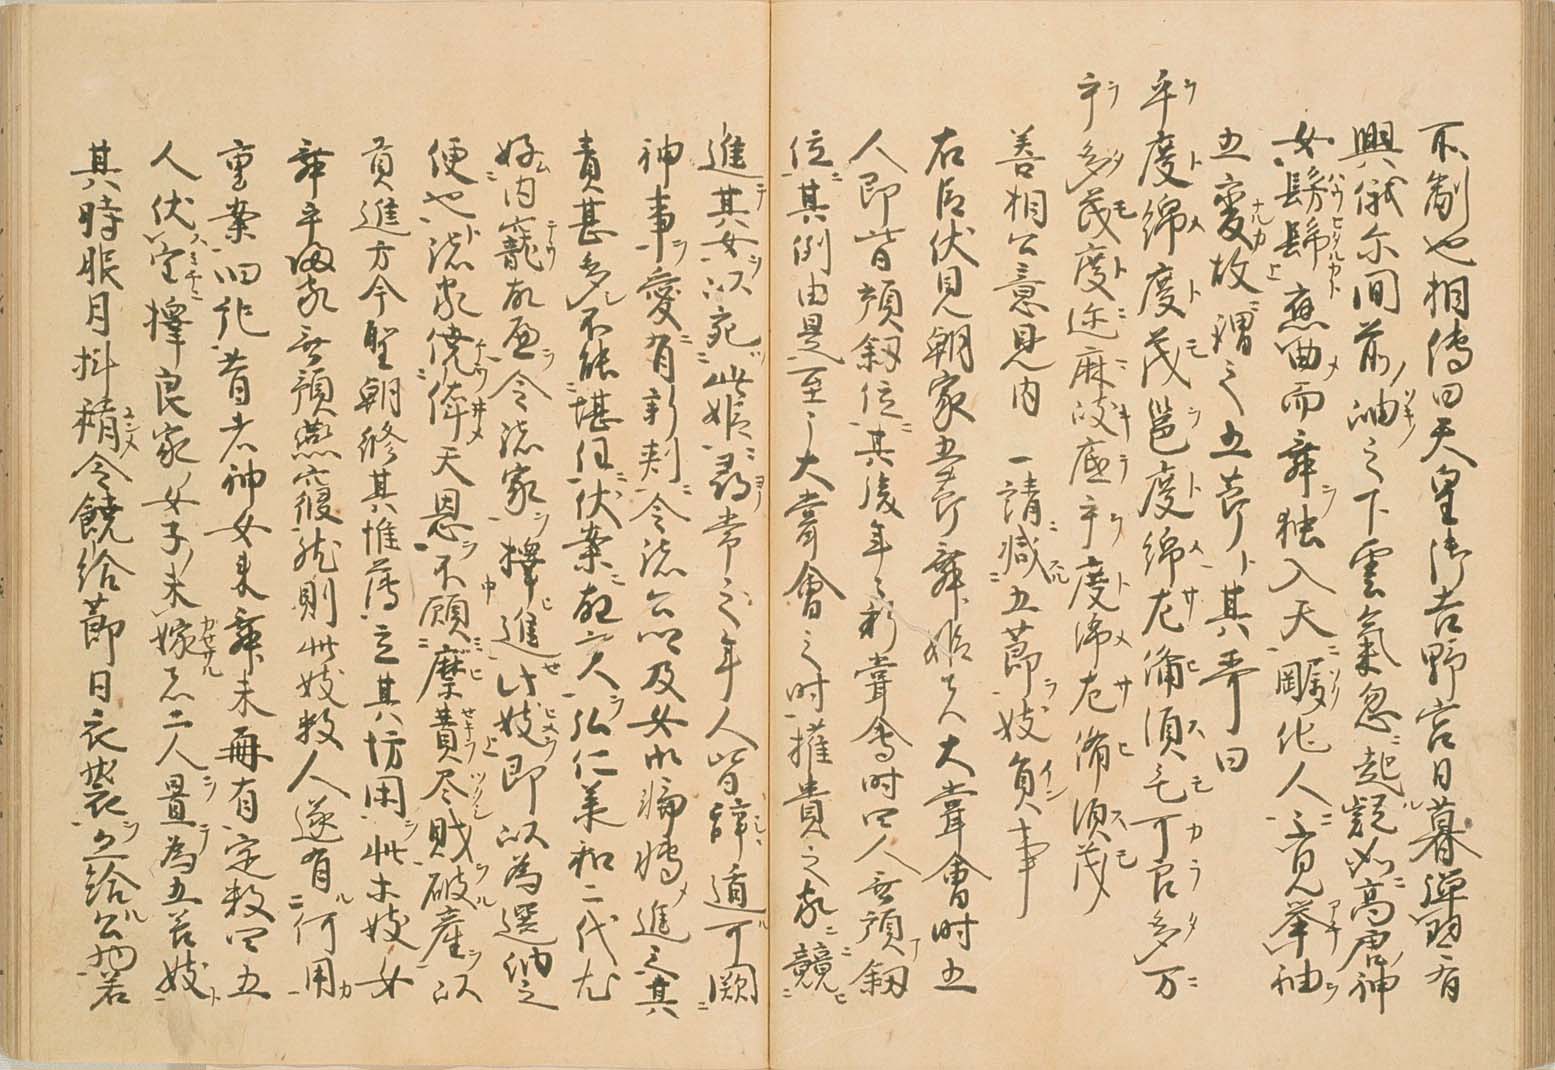 所制也相傳曰天皇御吉野宮日暮弾琴有
興俄尓間前岫之下雲氣忽起疑如高唐神
女髣髴應曲而舞独入天矚他人無見挙袖
五変故謂之五節其哥曰
乎度綿度茂邕度綿左備須毛可良多万
乎多茂度迩麻岐底乎度綿左備須茂
善相公意見内一請減五節妓員事
右臣伏見朝家五節舞姫大甞會時五
人即皆預叙位其後年々新甞會時四人無預叙
位其例由是至于大甞會之時権貴之家競
進其女以宛此妓尋常之年人皆辞遁可闕
神事爰有新制令諸公卿及女御輪轉進之其
責甚多不能堪任伏案故実弘仁羙和二代尤
好内寵故遍令諸家擇進此妓即以為選納之
便也諸家僥倖天恩不顧糜費尽財破産以
貢進方今聖朝修其惟薄立其防閑此木妓女
舞乎歸家無預燕寝然則此妓数人遂有何用
重案旧化昔者神女来舞未再有定数四五
人伏望擇良家女子未嫁二人置為五節妓
其時服月料稍令饒給節日衣裳亦給公物若